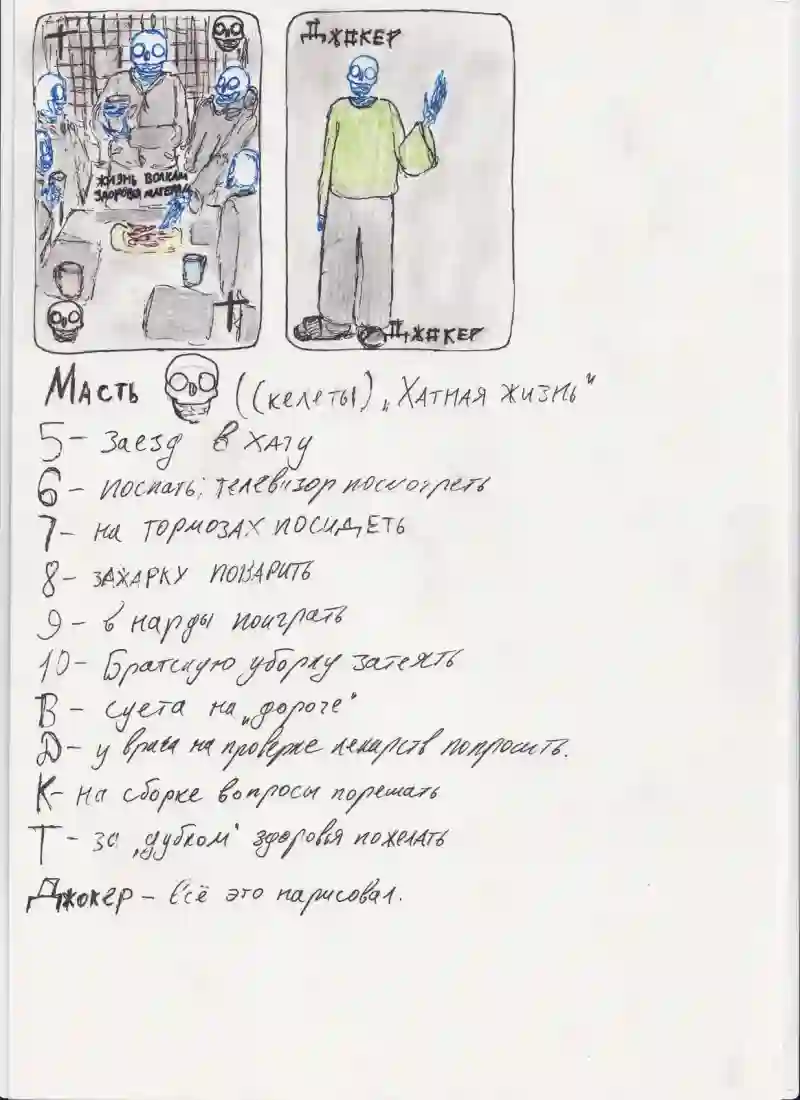 Т
Джокер
ЖИЗНЬ ВОЛКАМ
ЗДОРОВЬЯ МАТЕРЯМ
Т
Джокер
Масть (Скелеты) „Хатная жизнь"
5 – Заезд в хату
6 – поспать, телевизор посмотреть
7 – на тормозах посидеть
8 – захарку поварить
9 – в нарды поиграть
10 – Братскую уборку затеять
В – суета на „дороге"
Д – у врача на проверке лекарств попросить.
К – на сборке вопросы порешать
Т – за „дубком" здоровья пожелать
Джокер – всё это нарисовал.